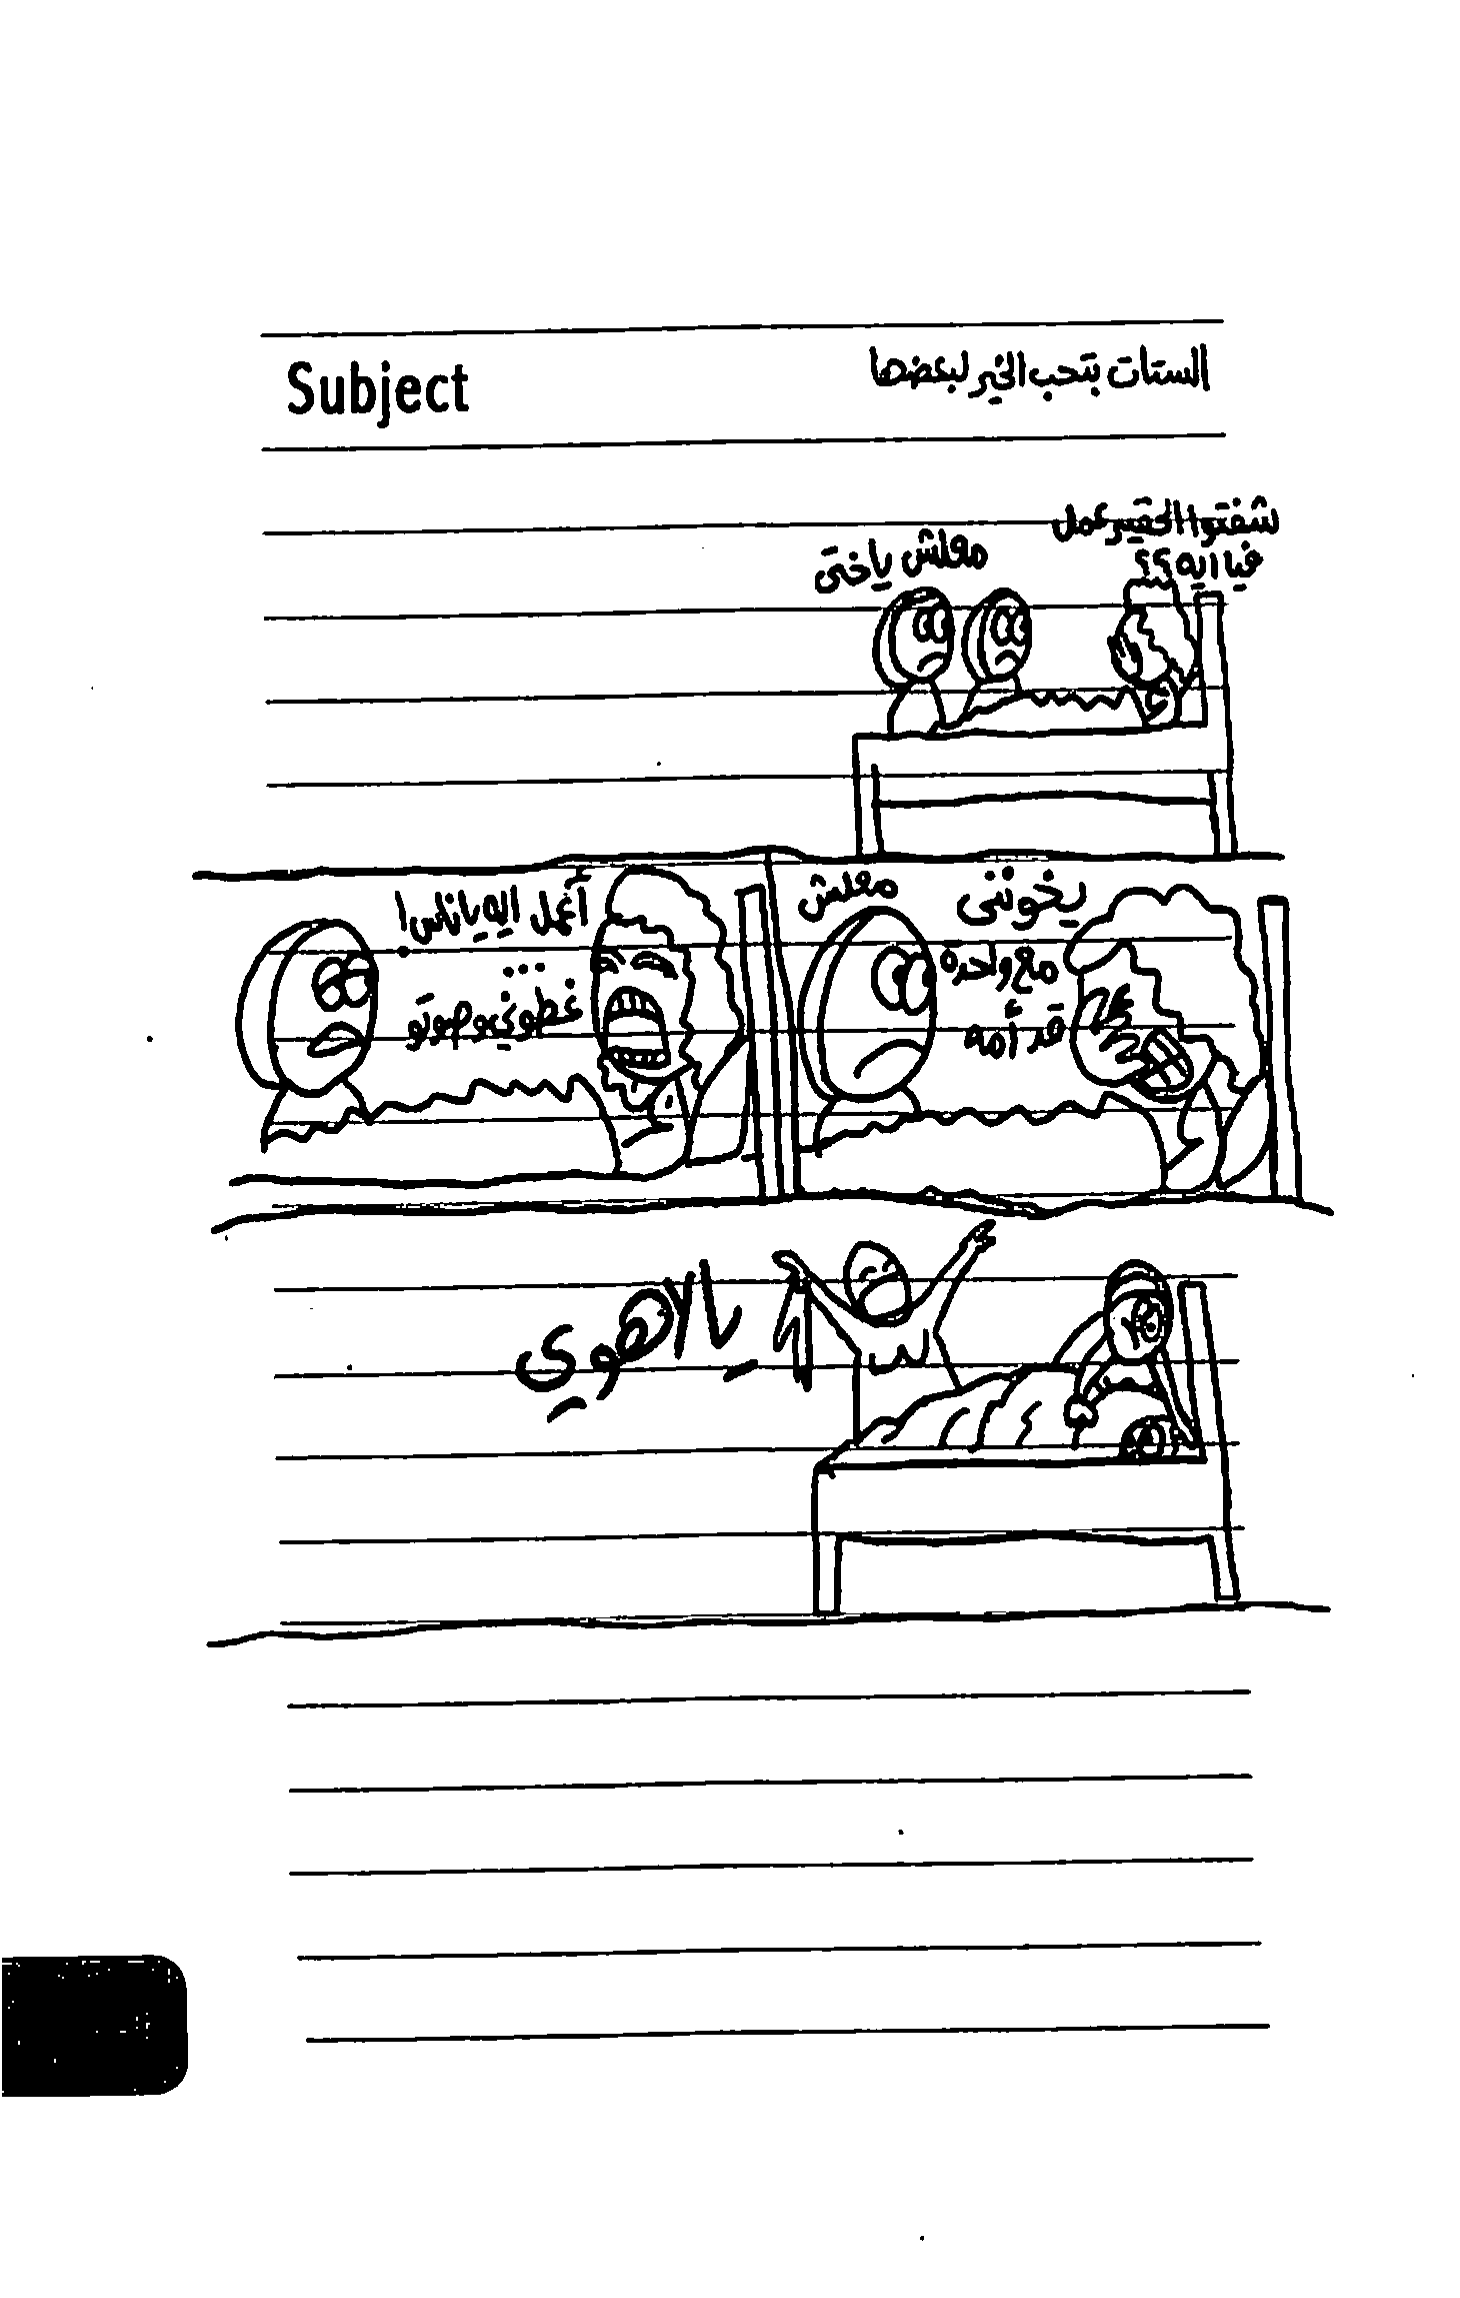 Subject
الستات بتحب الخير لبعضها
شفتوا الحقير عمل
فيا ايه؟؟
معلش ياختي
يخونني
مع واحدة
قد أمه
معلش
أعمل ايه ياناس!
...
غطوني وصوتو
يالاهوي